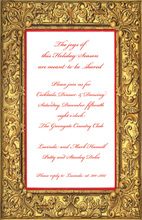 The joys of
this Holiday Season
are meant to be shared
Please join us for
Cocktails, Dinner & Dancing
Saturday, December fifteenth
eight o'clock
The Grangate Country Club
Lucinda and Mark Hamill
Patty and Stanley Duke
Please reply to Lucinda at